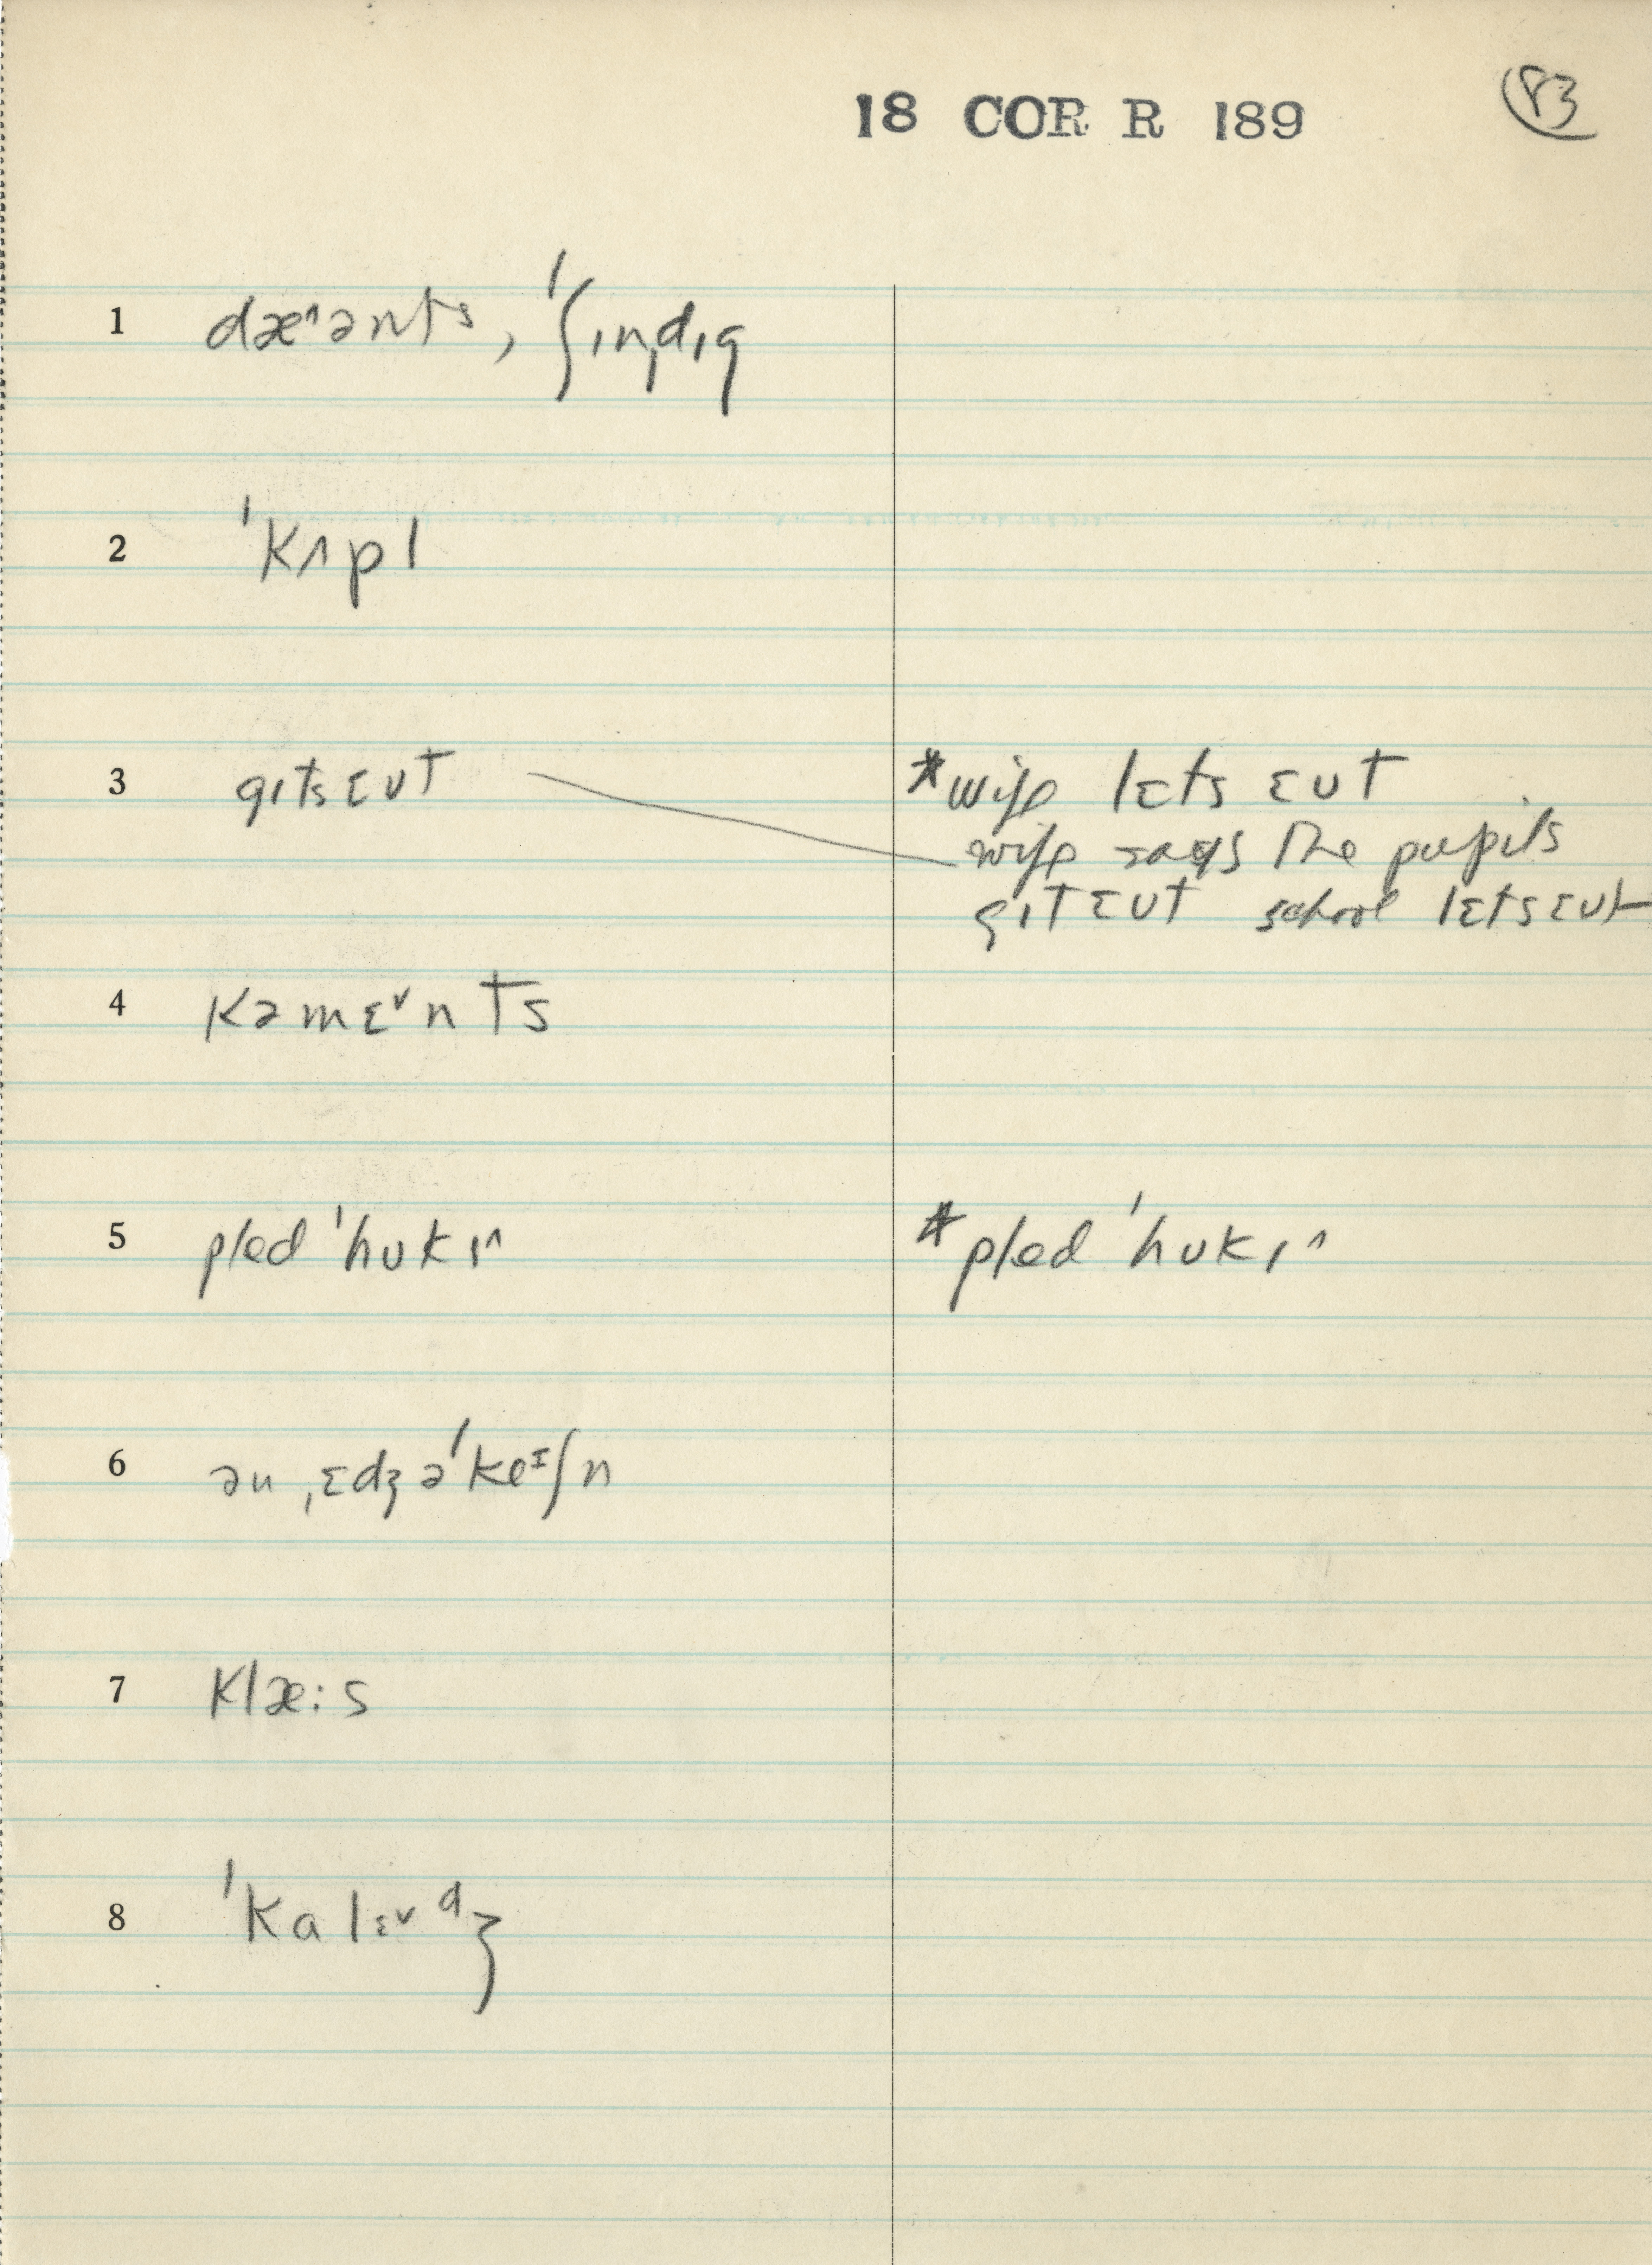 18 COR R 189
83
1 dæ^ənts, ˈʃɪnˌdɪg
2 ˈkʌpl
3 gɪtsɛʊt *wife lɛts ɛʊt
wife says the pupils
gɪtɛʊt school lɛtsɛʊt
4 kəmɛᵛnts
5 pled ˈhʊkɪ^ *pled ˈhʊkɪ^
6 ən ˌɛdʒəˈkeᶦʃn
7 klæ:s
8 ˈkalɛᵛᵈʒ